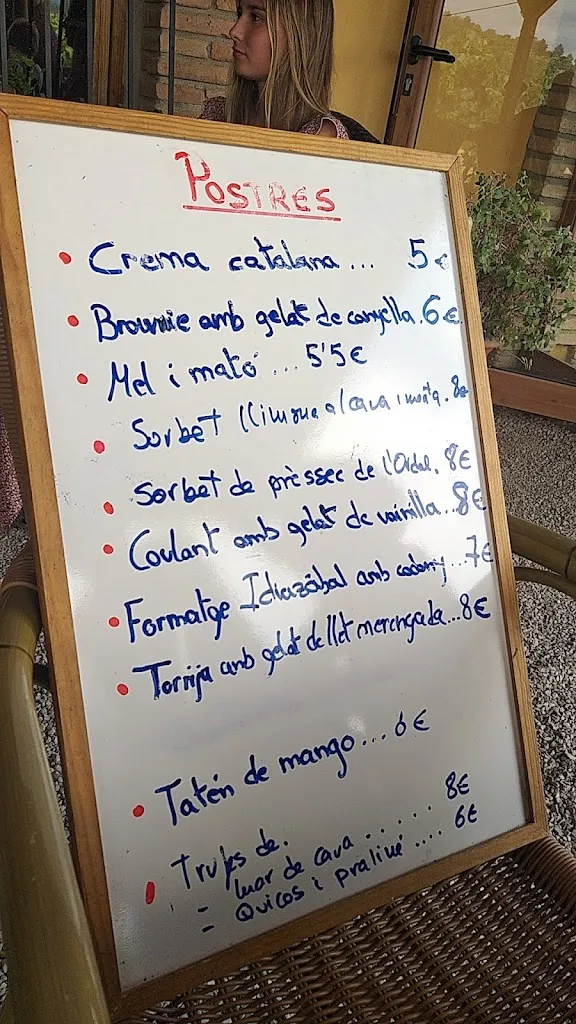 POSTRES
• Crema catalana ... 5€
• Brownie amb gelat de canyella. 6€
• Mel i mató ... 5'5€
• Sorbet llimona al cava i menta. 8€
• Sorbet de prèssec de l'Ordal. 8€
• Coulant amb gelat de vainilla... 8€
• Formatge Idiazábal amb codony... 7€
• Torrija amb gelat de llet merengada... 8€
• Tatén de mango... 6€
• Trufes de.
- Mar de cava ...... 8€
- Quicos i praliné .... 6€